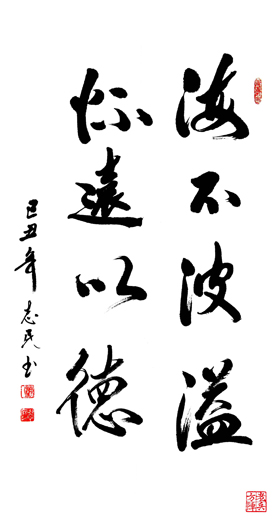 海不波溢
怀遠以德
己丑年 志民书